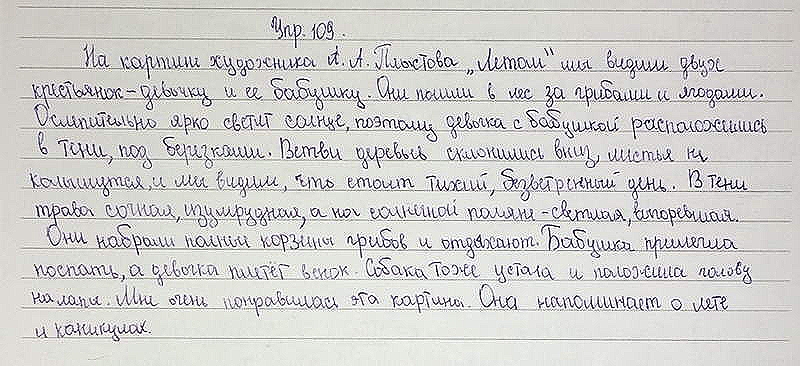 Упр. 109.
На картине художника А. А. Пластова „Летом" мы видим двух
крестьянок-девочку и ее бабушку. Они пошли в лес за грибами и ягодами.
Ослепительно ярко светит солнце, поэтому девочка с бабушкой расположились
в тени, под березками. Ветви деревьев склонились вниз, листья не
колышутся, и мы видим, что стоит тихий, безветренный день. В тени
трава сочная, изумрудная, а на солнечной поляне-светлая, выгоревшая.
Они набрали полные корзины грибов и отдыхают. Бабушка прилегла
поспать, а девочка плетёт венок. Собака тоже устала и положила голову
на лапы. Мне очень понравилась эта картина. Она напоминает о лете
и каникулах.